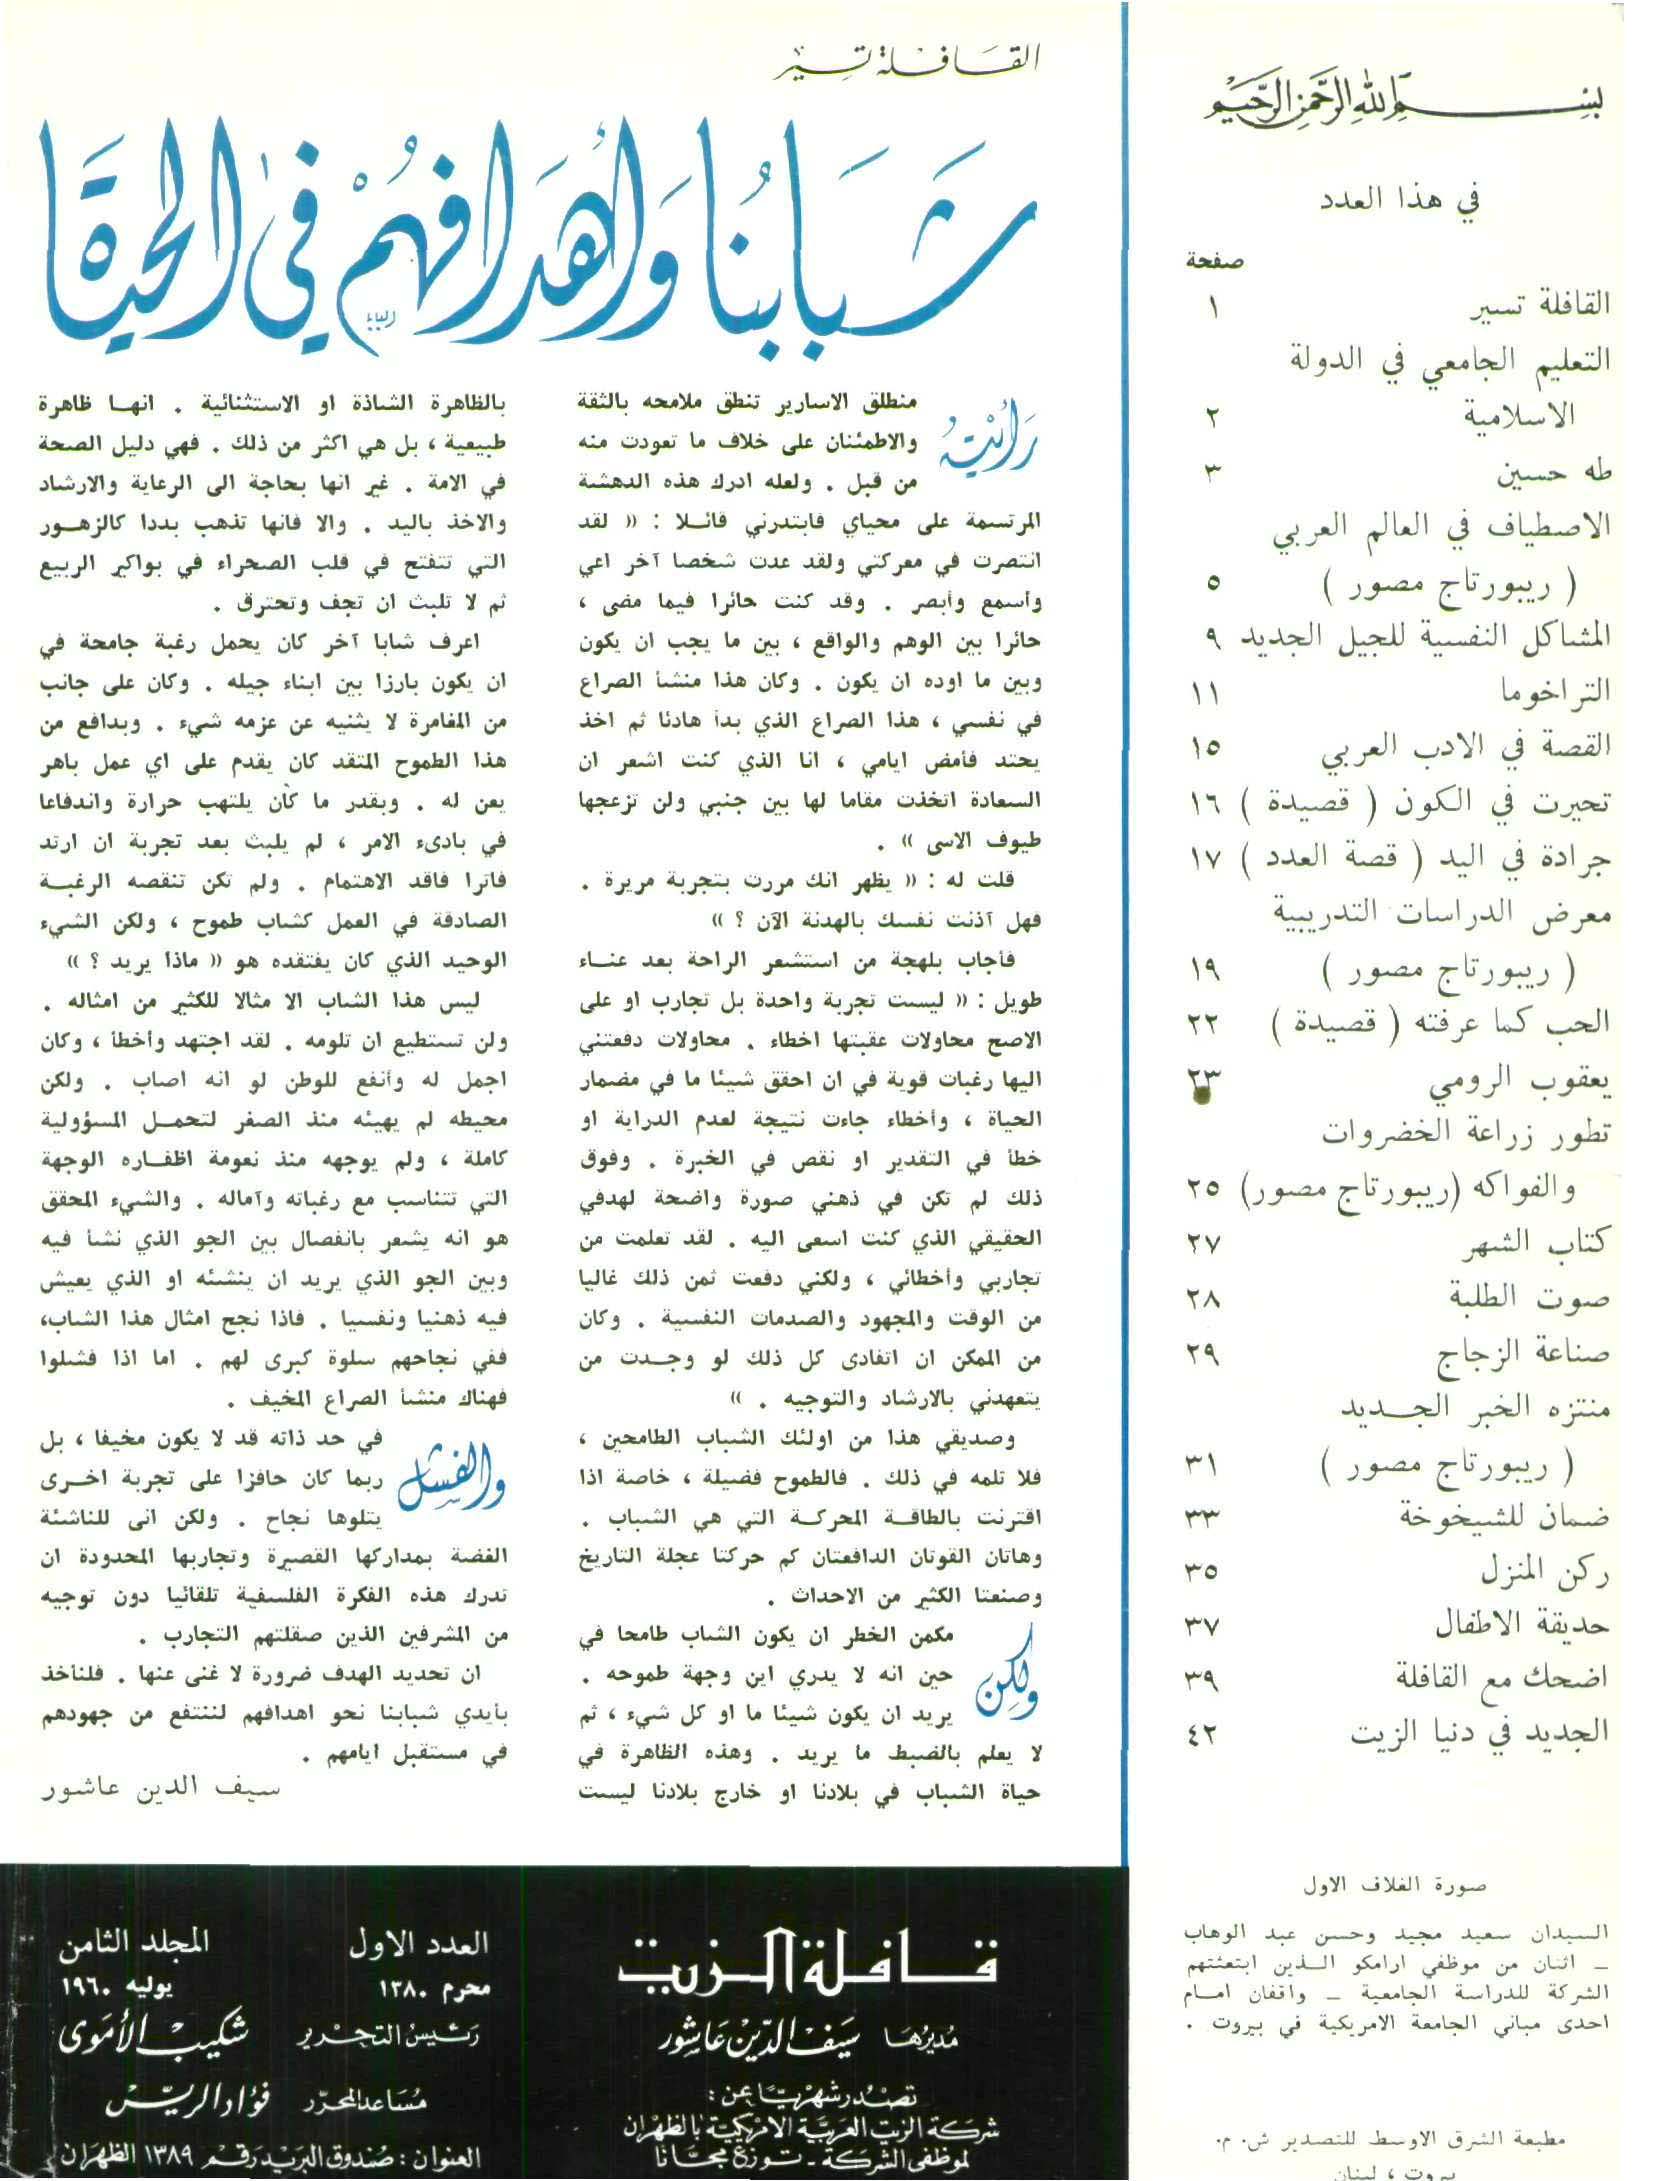 بسم الله الرحمن الرحيم
في هذا العدد
صفحة
القافلة تسير ١
التعليم الجامعي في الدولة
الاسلامية ٢
طه حسين ٣
الاصطياف في العالم العربي
( ريبورتاج مصور ) ٥
المشاكل النفسية للجيل الجديد ٩
التراخوما ١١
القصة في الادب العربي ١٥
تحيرت في الكون ( قصيدة ) ١٦
جرادة في اليد ( قصة العدد ) ١٧
معرض الدراسات التدريبية
( ريبورتاج مصور ) ١٩
الحب كما عرفته ( قصيدة ) ٢٢
يعقوب الرومي ٢٣
تطور زراعة الخضروات
والفواكه (ريبورتاج مصور) ٢٥
كتاب الشهر ٢٧
صوت الطلبة ٢٨
صناعة الزجاج ٢٩
منتزه الخبر الجــديد
( ريبورتاج مصور ) ٣١
ضمان للشيخوخة ٣٣
ركن المنزل ٣٥
حديقة الاطفال ٣٧
اضحك مع القافلة ٣٩
الجديد في دنيا الزيت ٤٢
صورة الغلاف الاول
السيدان سعيد مجيد وحسن عبد الوهاب
_ اثنان من موظفي ارامكو الـذين ابتعثتهم
الشركة للدراسة الجامعية _ واقفان امـام
احدى مباني الجامعة الامريكية في بيروت .
مطبعة الشرق الاوسط للتصدير ش. م.
بيروت ، لبنان
القافلة تسير
شبابنا وأهدافهم في الحياة
رأيته منطلق الاسارير تنطق ملامحه بالثقة
والاطمئنان على خلاف ما تعودت منه
من قبل . ولعله ادرك هذه الدهشة
المرتسمة على محياي فابتدرني قائـلا : « لقد
انتصرت في معركتي ولقد عدت شخصا آخر اعي
وأسمع وأبصر . وقد كنت حائرا فيما مضى ،
حائرا بين الوهم والواقع ، بين ما يجب ان يكون
وبين ما اوده ان يكون . وكان هذا منشأ الصراع
في نفسي ، هذا الصراع الذي بدأ هادئا ثم اخذ
يحتد فأمض ايامي ، انا الذي كنت اشعر ان
السعادة اتخذت مقاما لها بين جنبي ولن تزعجها
طيوف الاسى » .
قلت له : « يظهر انك مررت بتجربة مريرة .
فهل آذنت نفسك بالهدنة الآن ؟ »
فأجاب بلهجة من استشعر الراحة بعد عنـاء
طويل : « ليست تجربة واحدة بل تجارب او على
الاصح محاولات عقبتها اخطاء . محاولات دفعتني
اليها رغبات قوية في ان احقق شيئا ما في مضمار
الحياة ، وأخطاء جاءت نتيجة لعدم الدراية او
خطأ في التقدير او نقص في الخبرة . وفوق
ذلك لم تكن في ذهني صورة واضحة لهدفي
الحقيقي الذي كنت اسعى اليه . لقد تعلمت من
تجاربي وأخطائي ، ولكني دفعت ثمن ذلك غاليا
من الوقت والمجهود والصدمات النفسية . وكان
من الممكن ان اتفادى كل ذلك لو وجـدت من
يتعهدني بالارشاد والتوجيه . »
وصديقي هذا من اولئك الشباب الطامحين ،
فلا تلمه في ذلك . فالطموح فضيلة ، خاصة اذا
اقترنت بالطاقـة المحركـة التي هي الشباب .
وهاتان القوتان الدافعتان كم حركتا عجلة التاريخ
وصنعتا الكثير من الاحداث .
ولكن مكمن الخطر ان يكون الشباب طامحا في
حين انه لا يدري اين وجهة طموحه .
يريد ان يكون شيئا ما او كل شيء ، ثم
لا يعلم بالضبط ما يريد . وهذه الظاهرة في
حياة الشباب في بلادنا او خارج بلادنا ليست
بالظاهرة الشاذة او الاستثنائية . انهـا ظاهرة
طبيعية ، بل هي اكثر من ذلك . فهي دليل الصحة
في الامة . غير انها بحاجة الى الرعاية والارشاد
والاخذ باليد . والا فانها تذهب بددا كالزهـور
التي تتفتح في قلب الصحراء في بواكير الربيع
ثم لا تلبث ان تجف وتحترق .
اعرف شابا آخر كان يحمل رغبة جامحة في
ان يكون بارزا بين ابناء جيله . وكان على جانب
من المغامرة لا يثنيه عن عزمه شيء . وبدافع من
هذا الطموح المتقد كان يقدم على اي عمل باهر
يعن له . وبقدر ما كان يلتهب حرارة واندفاعا
في بادىء الامر ، لم يلبث بعد تجربة ان ارتد
فاترا فاقد الاهتمام . ولم تكن تنقصه الرغبـة
الصادقة في العمل كشاب طموح ، ولكن الشيء
الوحيد الذي كان يفتقده هو « ماذا يريد ؟ »
ليس هذا الشاب الا مثالا للكثير من امثاله .
ولن تستطيع ان تلومه . لقد اجتهد وأخطأ ، وكان
اجمل له وأنفع للوطن لو انه اصاب . ولكن
محيطه لم يهيئه منذ الصغر لتحمـل المسؤولية
كاملة ، ولم يوجهه منذ نعومة اظفـاره الوجهة
التي تتناسب مع رغباته وآماله . والشيء المحقق
هو انه يشعر بانفصال بين الجو الذي نشأ فيه
وبين الجو الذي يريد ان ينشئه او الذي يعيش
فيه ذهنيا ونفسيا . فاذا نجح امثال هذا الشاب،
ففي نجاحهم سلوة كبرى لهم . اما اذا فشلوا
فهناك منشأ الصراع المخيف .
والفشل في حد ذاته قد لا يكون مخيفا ، بل
ربما كان حافزا على تجربة اخـرى
يتلوها نجاح . ولكن انى للناشئة
الغضة بمداركها القصيرة وتجاربها المحدودة ان
تدرك هذه الفكرة الفلسفية تلقائيا دون توجيه
من المشرفين الذين صقلتهم التجارب .
ان تحديد الهدف ضرورة لا غنى عنها . فلنأخذ
بأيدي شبابنا نحو اهدافهم لننتفع من جهودهم
في مستقبل ايامهم .
سيف الدين عاشور
قافلة الزيت
مديرها سيف الدين عاشور
تصدر شهريا عن :
شركة الزيت العربية الامريكية بالظهران
لموظفي الشركة - توزع مجانا
العدد الاول المجلد الثامن
محرم ١٣٨٠ يوليه ١٩٦٠
رئيس التحرير شكيب الأموي
مساعد المحرر فؤاد الريس
العنوان : صندوق البريد رقم ١٣٨٩ الظهران